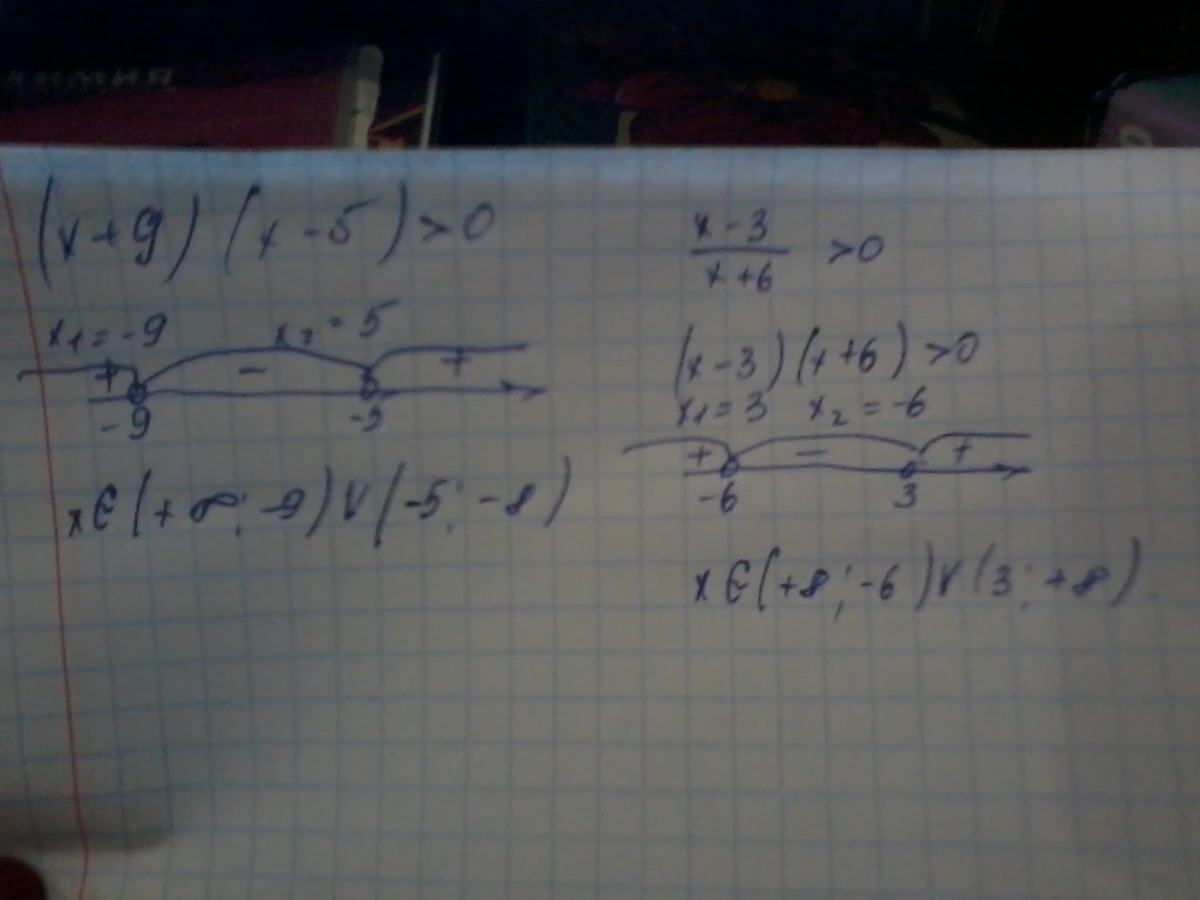 (x+9) (x-5) >0
x₁=-9 x₂=5
+ - +
-9 -5
x∈(+∞; -9)∨(-5; -8)
x-3
x+6 >0
(x-3)(x+6) >0
x₁=3 x₂=-6
+ - +
-6 3
x∈(+8; -6)∨(3; +8)